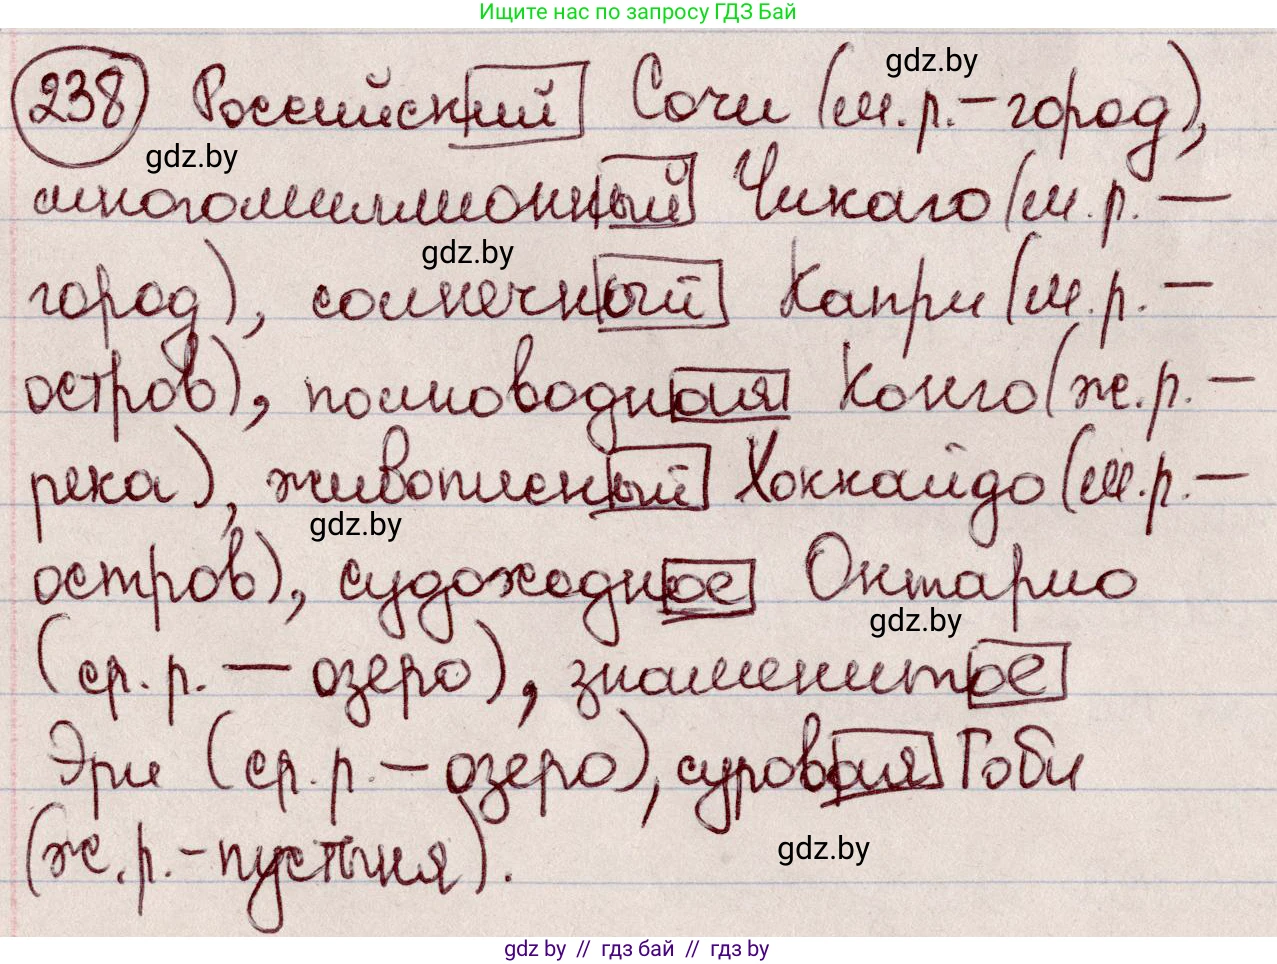 Ищите нас по запросу ГДЗ Бай
238 Российский Сочи (м.р. - город),
gdz.by
gdz.by
многомиллионный Чикаго (м.р. —
gdz.by
город), солнечный Капри (м.р. —
остров), полноводная Конго (ж.р. —
река), живописный Хоккайдо (м.р. —
gdz.by
остров), судоходное Онтарио
gdz.by
(ср.р. — озеро), знаменитое
Эри (ср.р. — озеро), суровая Гоби
(ж.р. - пустыня).
gdz.by
gdz.by // гдз бай // gdz.by